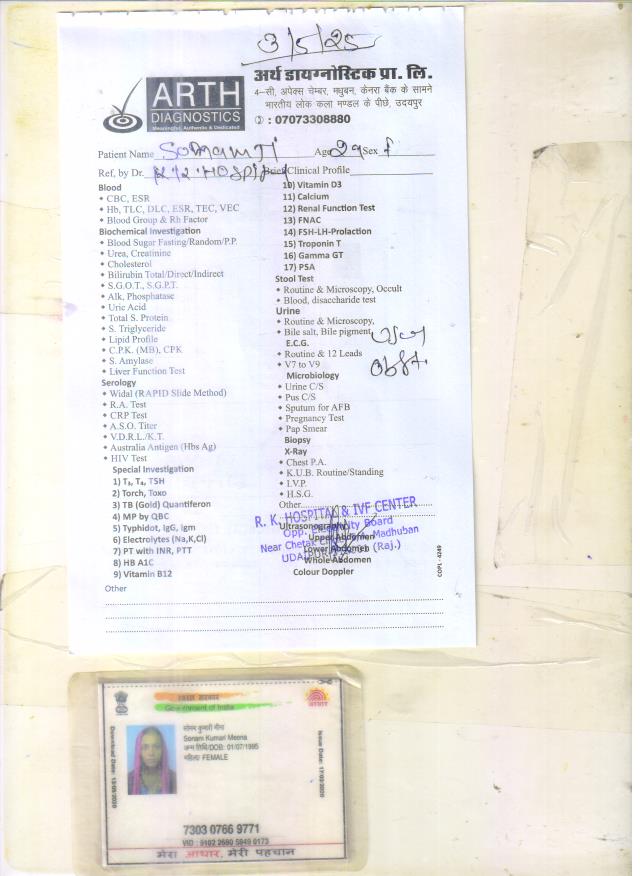 3/5/25
ARTH
DIAGNOSTICS
Meaningful, Authentic & Dedicated
अर्थ डायग्नोस्टिक प्रा. लि.
4-सी, अपेक्स चेम्बर, मधुबन, केनरा बैंक के सामने
भारतीय लोक कला मण्डल के पीछे, उदयपुर
: 07073308880
Patient Name Age 29 Sex f
Ref, by Dr. Hospital Brief Clinical Profile
Blood
• CBC, ESR
• Hb, TLC, DLC, ESR, TEC, VEC
• Blood Group & Rh Factor
Biochemical Investigation
• Blood Sugar Fasting/Random/P.P.
• Urea, Creatinine
• Cholesterol
• Bilirubin Total/Direct/Indirect
• S.G.O.T., S.G.P.T.
• Alk, Phosphatase
• Uric Acid
• Total S. Protein
• S. Triglyceride
• Lipid Profile
• C.P.K. (MB), CPK
• S. Amylase
• Liver Function Test
Serology
• Widal (RAPID Slide Method)
• R.A. Test
• CRP Test
• A.S.O. Titer
• V.D.R.L./K.T.
• Australia Antigen (Hbs Ag)
• HIV Test
Special Investigation
1) T₃, T₄, TSH
2) Torch, Toxo
3) TB (Gold) Quantiferon
4) MP by QBC
5) Typhidot, IgG, Igm
6) Electrolytes (Na,K,Cl)
7) PT with INR, PTT
8) HB A1C
9) Vitamin B12
10) Vitamin D3
11) Calcium
12) Renal Function Test
13) FNAC
14) FSH-LH-Prolaction
15) Troponin T
16) Gamma GT
17) PSA
Stool Test
• Routine & Microscopy, Occult
• Blood, disaccharide test
Urine
• Routine & Microscopy,
• Bile salt, Bile pigment,
E.C.G.
• Routine & 12 Leads
• V7 to V9
Microbiology
• Urine C/S
• Pus C/S
• Sputum for AFB
• Pregnancy Test
• Pap Smear
Biopsy
X-Ray
• Chest P.A.
• K.U.B. Routine/Standing
• I.V.P.
• H.S.G.
Other
Ultrasonography
Upper Abdomen
Lower Abdomen
Whole Abdomen
Colour Doppler
R. K. HOSPITAL & IVF CENTER
Opp. Board
Near Chetak Madhuban
UDAIPUR (Raj.)
COPL - 4249
Other
भारत सरकार
Government of India
आधार
सोनम कुमारी मीना
Sonam Kumari Meena
जन्म तिथि/DOB: 01/07/1995
महिला/ FEMALE
Download Date: 13/05/2020
Issue Date: 17/02/2020
7303 0766 9771
VID : 9102 2680 5949 0173
मेरा आधार, मेरी पहचान